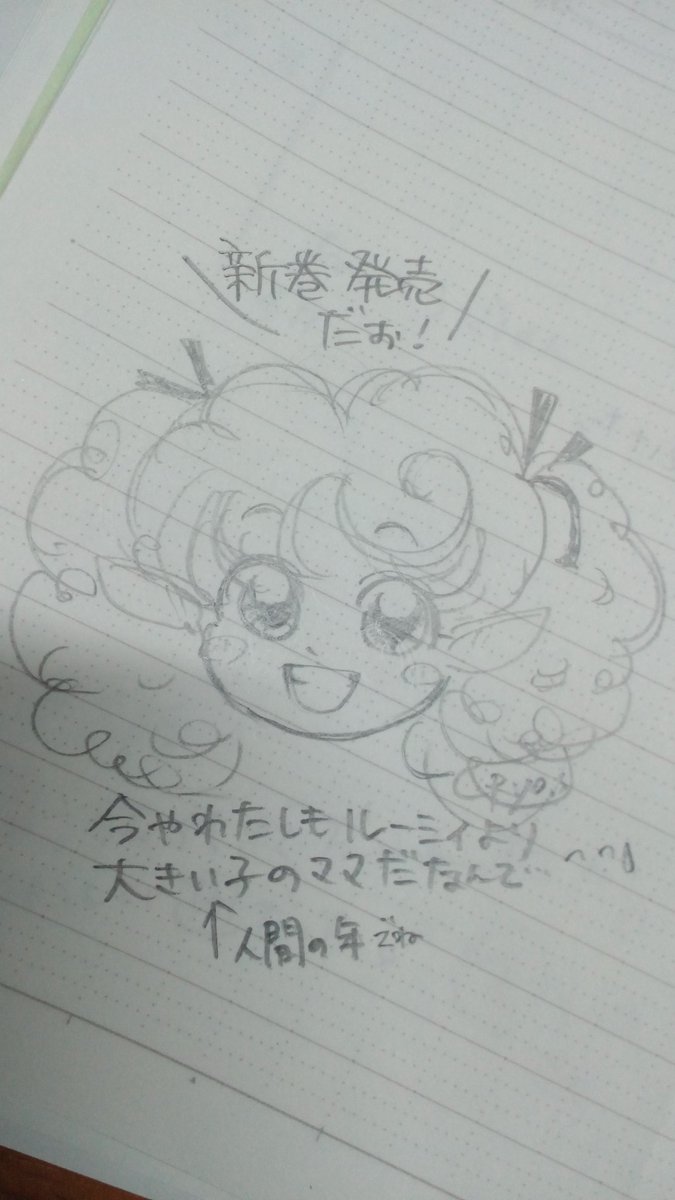 新巻 発売
だお!
Ryo.
今やわたしもルーミィより
大きい子のママだなんて…
↑人間の年でね